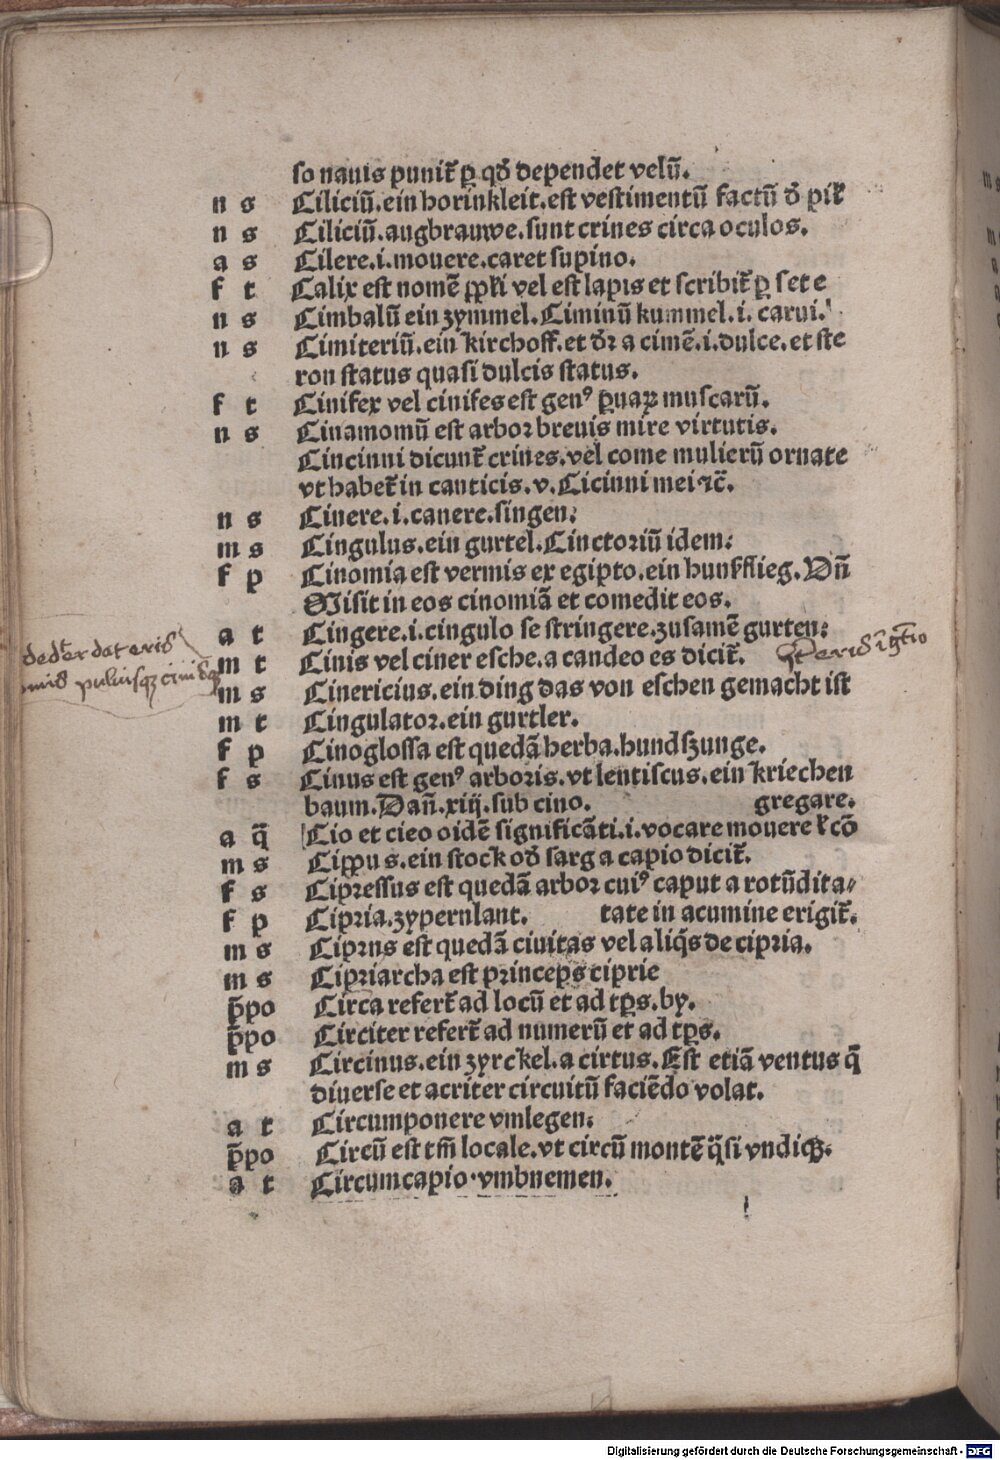 so nauis punit᷑ ꝑ qḋ dependet velū.
n s Ciliciū.ein horinkleit.est vestimentū factū ḋ pil᷑
n s Ciliciū.augbrauwe.sunt crines circa oculos.
a s Cilere.i.mouere.caret supino.
f t Calix est nomē ꝓpli vel est lapis et scribit᷑ ꝑ s et e
n s Cimbalū ein zymmel.Ciminū kummel.i.carui.
n s Cimiteriū.ein kirchoff.et ḋr a cimē.i.dulce.et ste
ron status quasi dulcis status.
f t Cinifex vel cinifes est genꝰ ꝑuaꝝ muscarū.
n s Cinamomū est arbor breuis mire virtutis.
Cincinni dicunt᷑ crines.vel come mulierū ornate
vt habet᷑ in canticis.v.Cicinni mei ⁊c̄.
n s Cinere.i.canere.singen.
m s Cingulus.ein gurtel.Cinctoriū idem.
f p Cinomia est vermis ex egipto.ein hunkflieg.Dn̄
Misit in eos cinomiā et comedit eos.
a t Cingere.i.cingulo se stringere.zusamē gurten.
m t Cinis vel ciner esche.a candeo es dicit᷑.
m s Cinericius.ein ding das von eschen gemacht ist
m t Cingulator.ein gurtler.
f p Cinoglossa est quedā herba.hundszunge.
f s Cinus est genꝰ arboris.vt lentiscus.ein kriechen
baum.Dan̄.xiij.sub cino. gregare.
a q̄ Cio et cieo oidē significāti.i.vocare mouere ł cō
m s Cippus.ein stock oḋ sarg a capio dicit᷑.
f s Cipressus est quedā arbor cuiꝰ caput a rotūdita⸗
f p Cipria.zypernlant. tate in acumine erigit᷑.
m s Ciprns est quedā ciuitas vel aliq̄s de cipria.
m s Cipriarcha est princeps ciprie
p̄po Circa refert᷑ ad locū et ad tꝑs.by.
p̄po Circiter refert᷑ ad numerū et ad tꝑs.
m s Circinus.ein zyrckel.a cirtus.Est etiā ventus q̄
diuerse et acriter circuitū faciēdo volat.
a t Circumponere vmlegen.
p̄po Circū est tm̄ locale.vt circū montē q̄si vndiqꝫ.
a t Circumcapio.vmbnemen.
pulvisqꝫ
Digitalisierung gefördert durch die Deutsche Forschungsgemeinschaft - DFG